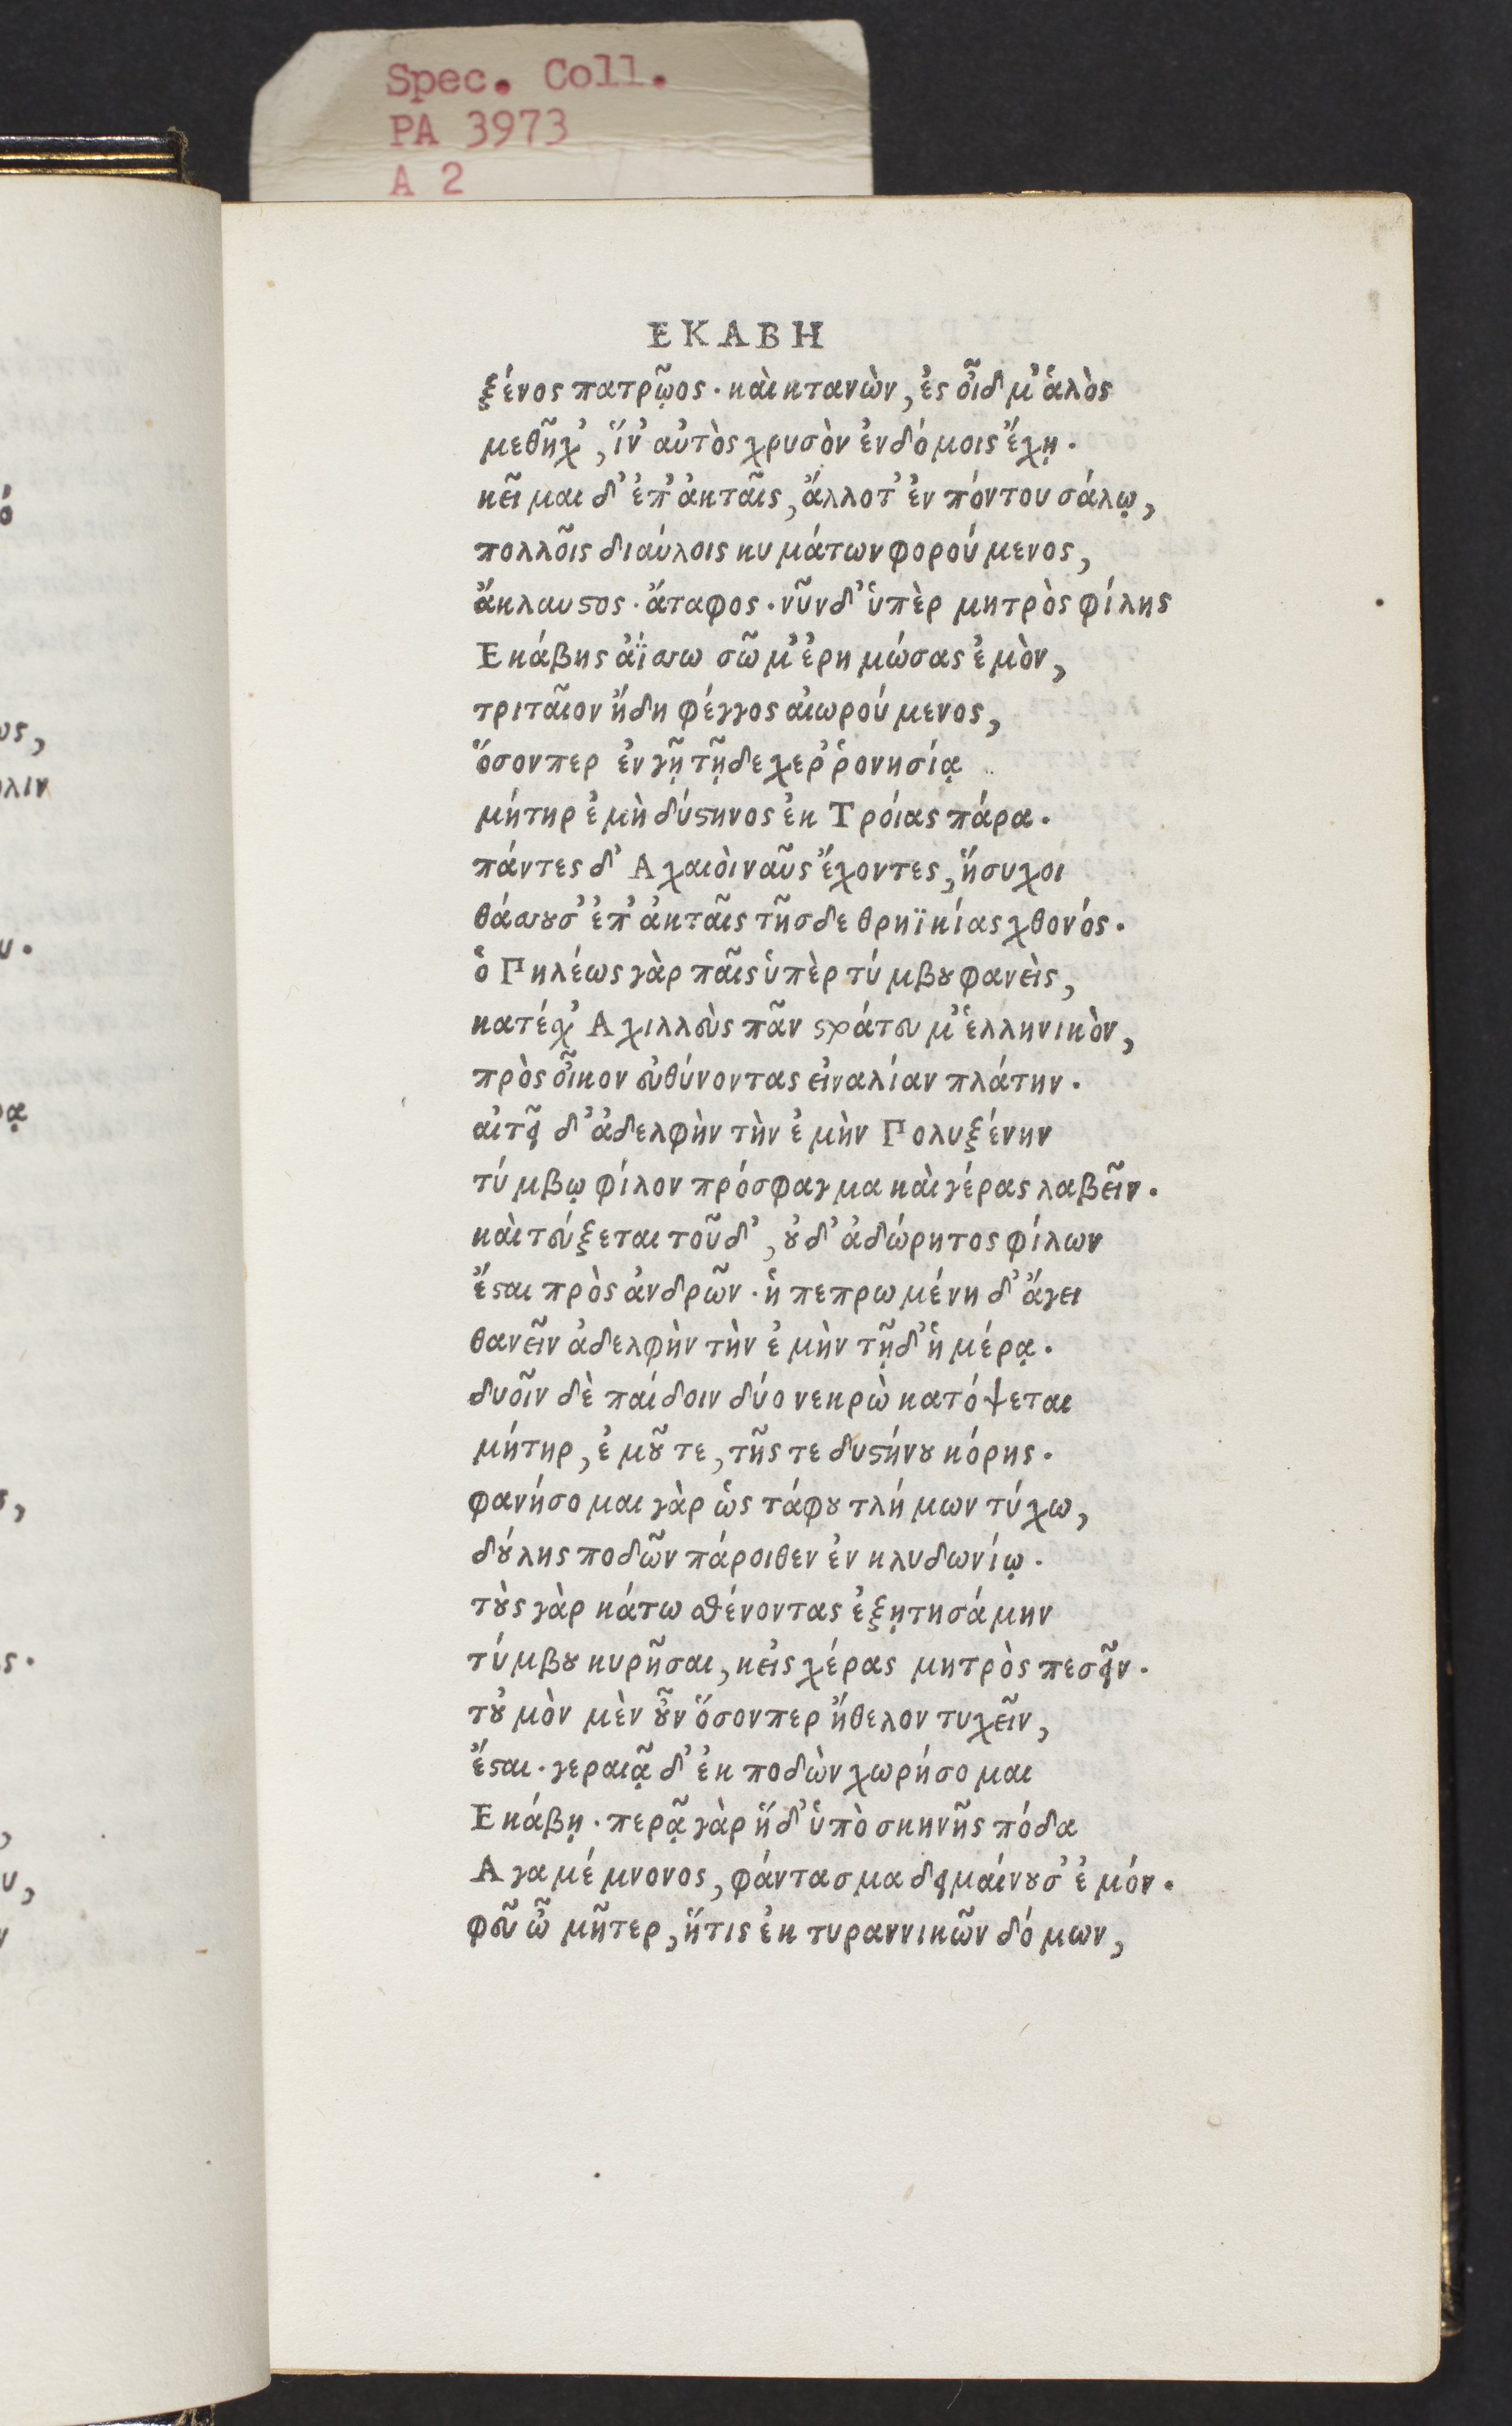 Spec. Coll.
PA 3973
A 2
ΕΚΑΒΗ
ξένος πατρῷος· καὶ κτανὼν, ἐς οἶδμ' ἁλὸς
μεθῆχ', ἵν' αὐτὸς χρυσὸν ἐν δόμοις ἔχῃ.
κεῖμαι δ' ἐπ' ἀκταῖς, ἄλλοτ' ἐν πόντου σάλῳ,
πολλοῖς διαύλοις κυμάτων φορούμενος,
ἄκλαυστος· ἄταφος· νῦν δ' ὑπὲρ μητρὸς φίλης
Εκάβης ἀΐσσω σῶμ' ἐρημώσας ἐμὸν,
τριταῖον ἤδη φέγγος αἰωρούμενος,
ὅσονπερ ἐν γῇ τῇδε χερῤῥονησίᾳ
μήτηρ ἐμὴ δύστηνος ἐκ Τροίας πάρα.
πάντες δ' Αχαιοὶ ναῦς ἔχοντες, ἥσυχοι
θάσσουσ' ἐπ' ἀκταῖς τῆσδε θρηϊκίας χθονός.
ὁ Πηλέως γὰρ παῖς ὑπὲρ τύμβου φανεὶς,
κατέχ' Αχιλλεὺς πᾶν στράτευμ' ἑλληνικὸν,
πρὸς οἶκον εὐθύνοντας εἰναλίαν πλάτην.
αἰτεῖ δ' ἀδελφὴν τὴν ἐμὴν Πολυξένην
τύμβῳ φίλον πρόσφαγμα καὶ γέρας λαβεῖν.
καὶ τεύξεται τοῦδ', οὐδ' ἀδώρητος φίλων
ἔσται πρὸς ἀνδρῶν· ἡ πεπρωμένη δ' ἄγει
θανεῖν ἀδελφὴν τὴν ἐμὴν τῇδ' ἡμέρᾳ.
δυοῖν δὲ παίδοιν δύο νεκρὼ κατόψεται
μήτηρ, ἐμοῦ τε, τῆς τε δυστήνου κόρης.
φανήσομαι γὰρ ὡς τάφου τλήμων τύχω,
δούλης ποδῶν πάροιθεν ἐν κλυδωνίῳ.
τοὺς γὰρ κάτω σθένοντας ἐξῃτησάμην
τύμβου κυρῆσαι, κεἰς χέρας μητρὸς πεσεῖν.
τοὐμὸν μὲν οὖν ὅσονπερ ἤθελον τυχεῖν,
ἔσται· γεραιᾷ δ' ἐκ ποδὼν χωρήσομαι
Εκάβῃ· περᾷ γὰρ ἥδ' ὑπὸ σκηνῆς πόδα
Αγαμέμνονος, φάντασμα δειμαίνουσ' ἐμόν.
φεῦ ὦ μῆτερ, ἥτις ἐκ τυραννικῶν δόμων,